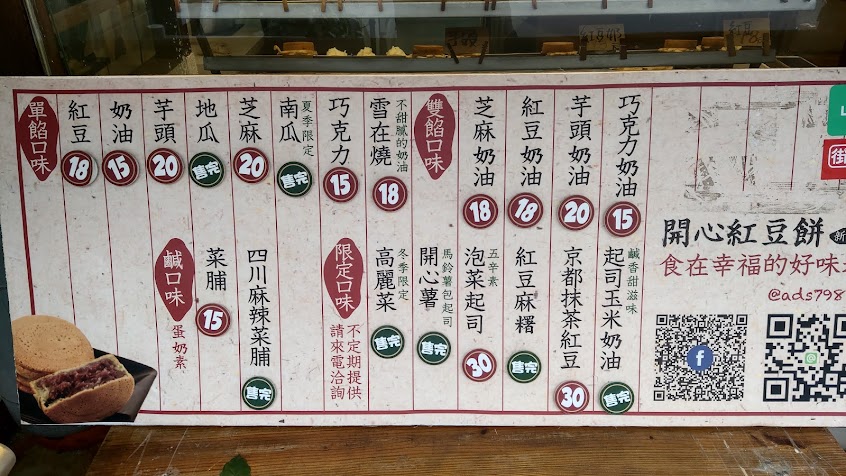 單餡口味
紅豆 18
奶油 15
芋頭 20
地瓜 售完
芝麻 20
南瓜 夏季限定 售完
巧克力 15
雪在燒 不甜膩的奶油 18
雙餡口味
芝麻奶油 18
紅豆奶油 18
芋頭奶油 20
巧克力奶油 15
鹹口味 蛋奶素
菜脯 15
四川麻辣菜脯 售完
限定口味 不定期提供 請來電洽詢
高麗菜 冬季限定 售完
開心薯 馬鈴薯包起司 售完
泡菜起司 五辛素 30
紅豆麻糬 售完
京都抹茶紅豆 30
起司玉米奶油 鹹香甜滋味 售完
街
開心紅豆餅 新
食在幸福的好味
@ads798
f